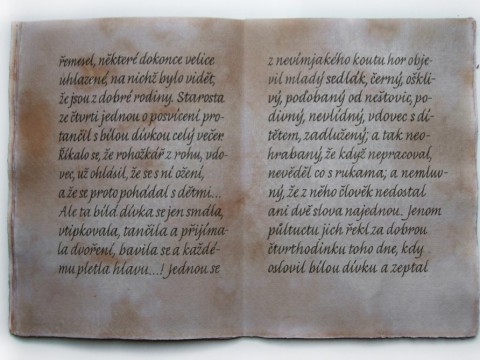 řemesel, některé dokonce velice
uhlazené, na nichž bylo vidět,
že jsou z dobré rodiny. Starosta
ze čtvrti jednou o posvícení pro-
tančil s bílou dívkou celý večer.
Říkalo se, že rohožkář z rohu, vdo-
vec, už ohlásil, že se s ní ožení,
a že se proto pohádal s dětmi...
Ale ta bílá dívka se jen smála,
vtipkovala, tančila a přijíma-
la dvoření, bavila se a každé-
mu pletla hlavu...! Jednou se
z nevímjakého koutu hor obje-
vil mladý sedlák, černý, oškli-
vý, poďobaný od neštovic, po-
divný, nevlídný, vdovec s dí-
tětem, zadlužený; a tak neo-
hrabaný, že když nepracoval,
nevěděl co s rukama; a nemluv-
ný, že z něho člověk nedostal
ani dvě slova najednou. Jenom
půltuctu jich řekl za dobrou
čtvrthodinku toho dne, kdy
oslovil bílou dívku a zeptal